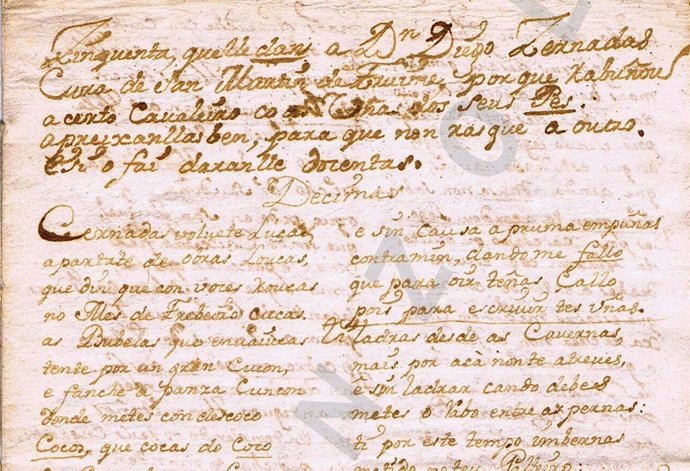 Zinquenta, quelle dan a Dn. Diego Zernadas
Cura de San Martiñ de Fruime, porque rabuñou
a certo Cavaleiro co as Uñas dos seus Pes.
apreixanllas ben, para que non rasque a outro.
e si o fai daranlle docentas.
Decimas
Cernadas volvete Lucas
apartate de obras Loucas,
que din que con voces roucas
no Mes de Febreiro cucas.
as Bubelas que
tente por un gran Cucon,
e fanche a panza
donde metes con descoco
Cocos, que cocas do Coco
e sin causa a pruma empuñas
contra min, dando me fallo
que para oir teñas Callo
pois para escrivir tes uñas.
Ti ladras desde as Cavernas,
mais por acà non te atreves,
e sin ladrar cando debes
metes o Rabo entre as pernas:
ti por este tempo imbernas